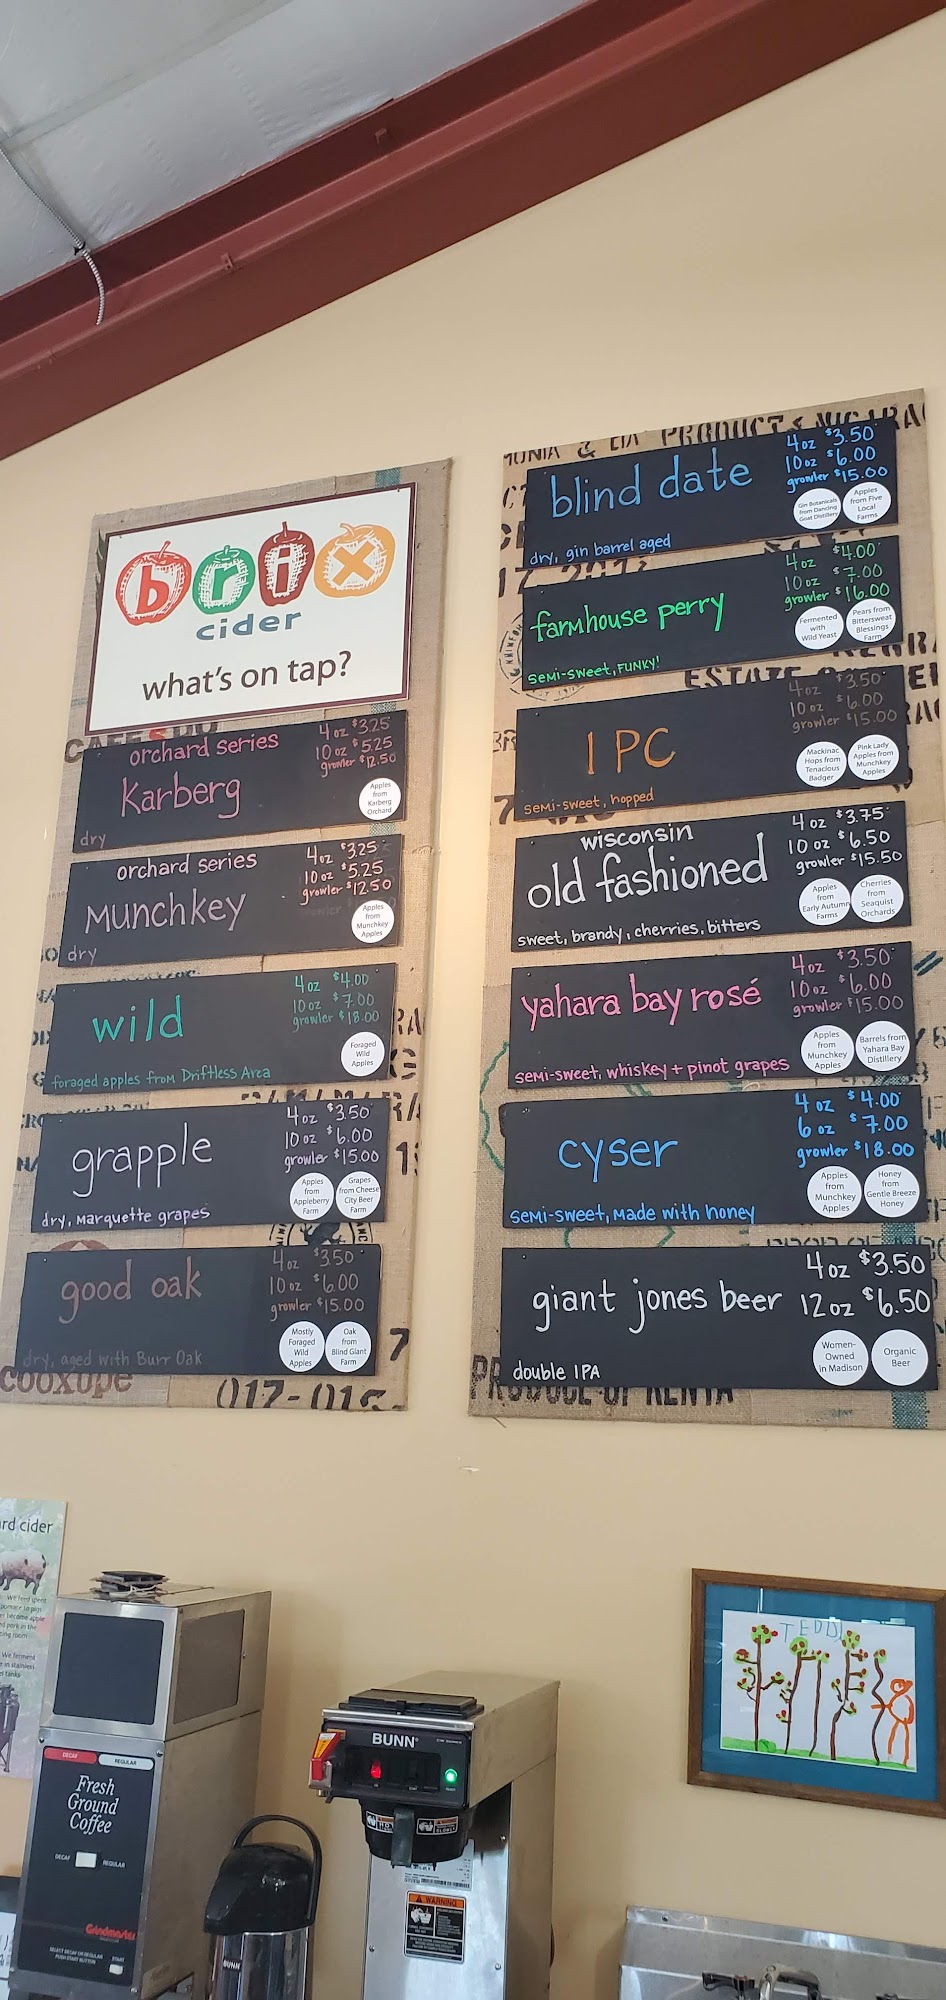 brix
cider
what's on tap?
orchard series
Karberg
4 oz $3.25
10 oz $5.25
growler $12.50
Apples
from
Karberg
Orchard
dry
orchard series
Munchkey
4 oz $3.25
10 oz $5.25
growler $12.50
Apples
from
Munchkey
Apples
dry
wild
4 oz $4.00
10 oz $7.00
growler $18.00
Foraged
Wild
Apples
foraged apples from Driftless Area
grapple
4 oz $3.50
10 oz $6.00
growler $15.00
Apples
from
Appleberry
Farm
Grapes
from Cheese
City Beer
Farm
dry, Marquette grapes
good oak
4 oz $3.50
10 oz $6.00
growler $15.00
Mostly
Foraged
Wild
Apples
Oak
from
Blind Giant
Farm
dry, aged with Burr Oak
017-016
blind date
4 oz $3.50
10 oz $6.00
growler $15.00
Gin Botanicals
from Dancing
Goat Distillery
Apples
from Five
Local
Farms
dry, gin barrel aged
farmhouse perry
4 oz $4.00
10 oz $7.00
growler $16.00
Fermented
with
Wild Yeast
Pears from
Bittersweat
Blessings
Farm
semi-sweet, FUNKY!
IPC
4 oz $3.50
10 oz $6.00
growler $15.00
Mackinac
Hops from
Tenacious
Badger
Pink Lady
Apples from
Munchkey
Apples
semi-sweet, hopped
wisconsin
old fashioned
4 oz $3.75
10 oz $6.50
growler $15.50
Apples
from
Early Autumn
Farms
Cherries
from
Seaquist
Orchards
sweet, brandy, cherries, bitters
yahara bay rosé
4 oz $3.50
10 oz $6.00
growler $15.00
Apples
from
Munchkey
Apples
Barrels from
Yahara Bay
Distillery
semi-sweet, whiskey + pinot grapes
cyser
4 oz $4.00
6 oz $7.00
growler $18.00
Apples
from
Munchkey
Apples
Honey
from
Gentle Breeze
Honey
semi-sweet, made with honey
giant jones beer
4 oz $3.50
12 oz $6.50
Women-
Owned
in Madison
Organic
Beer
double IPA
PRODUCE OF KENYA
rd cider
DECAF REGULAR
Fresh
Ground
Coffee
DECAF REGULAR
Grindmaster
SELECT DECAF OR REGULAR
PUSH START BUTTON
START
BUNN
BUNN
WARNING
TEDDY